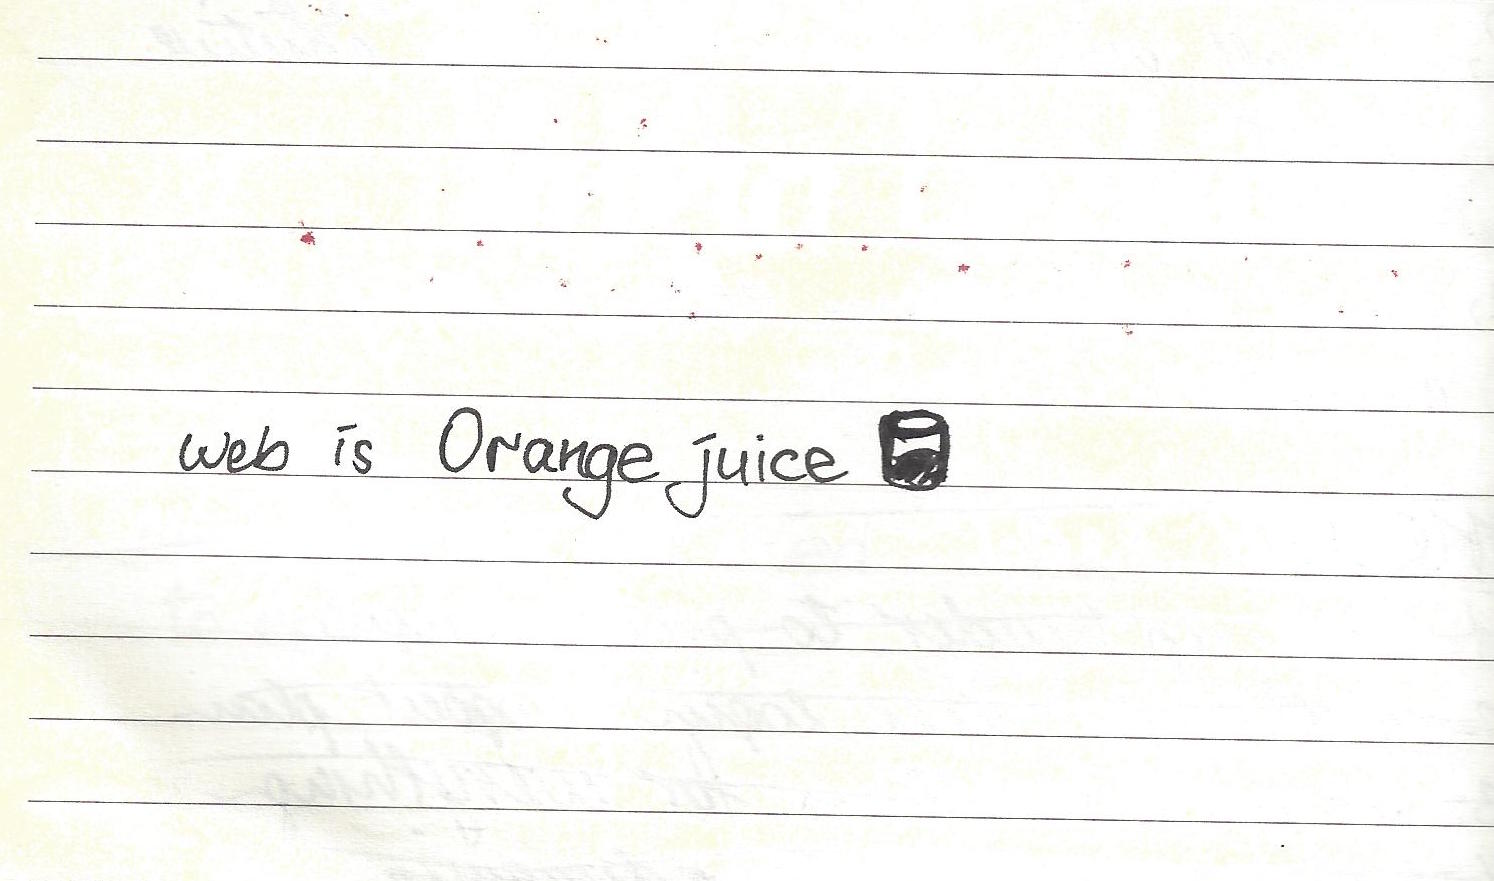 web is Orange juice